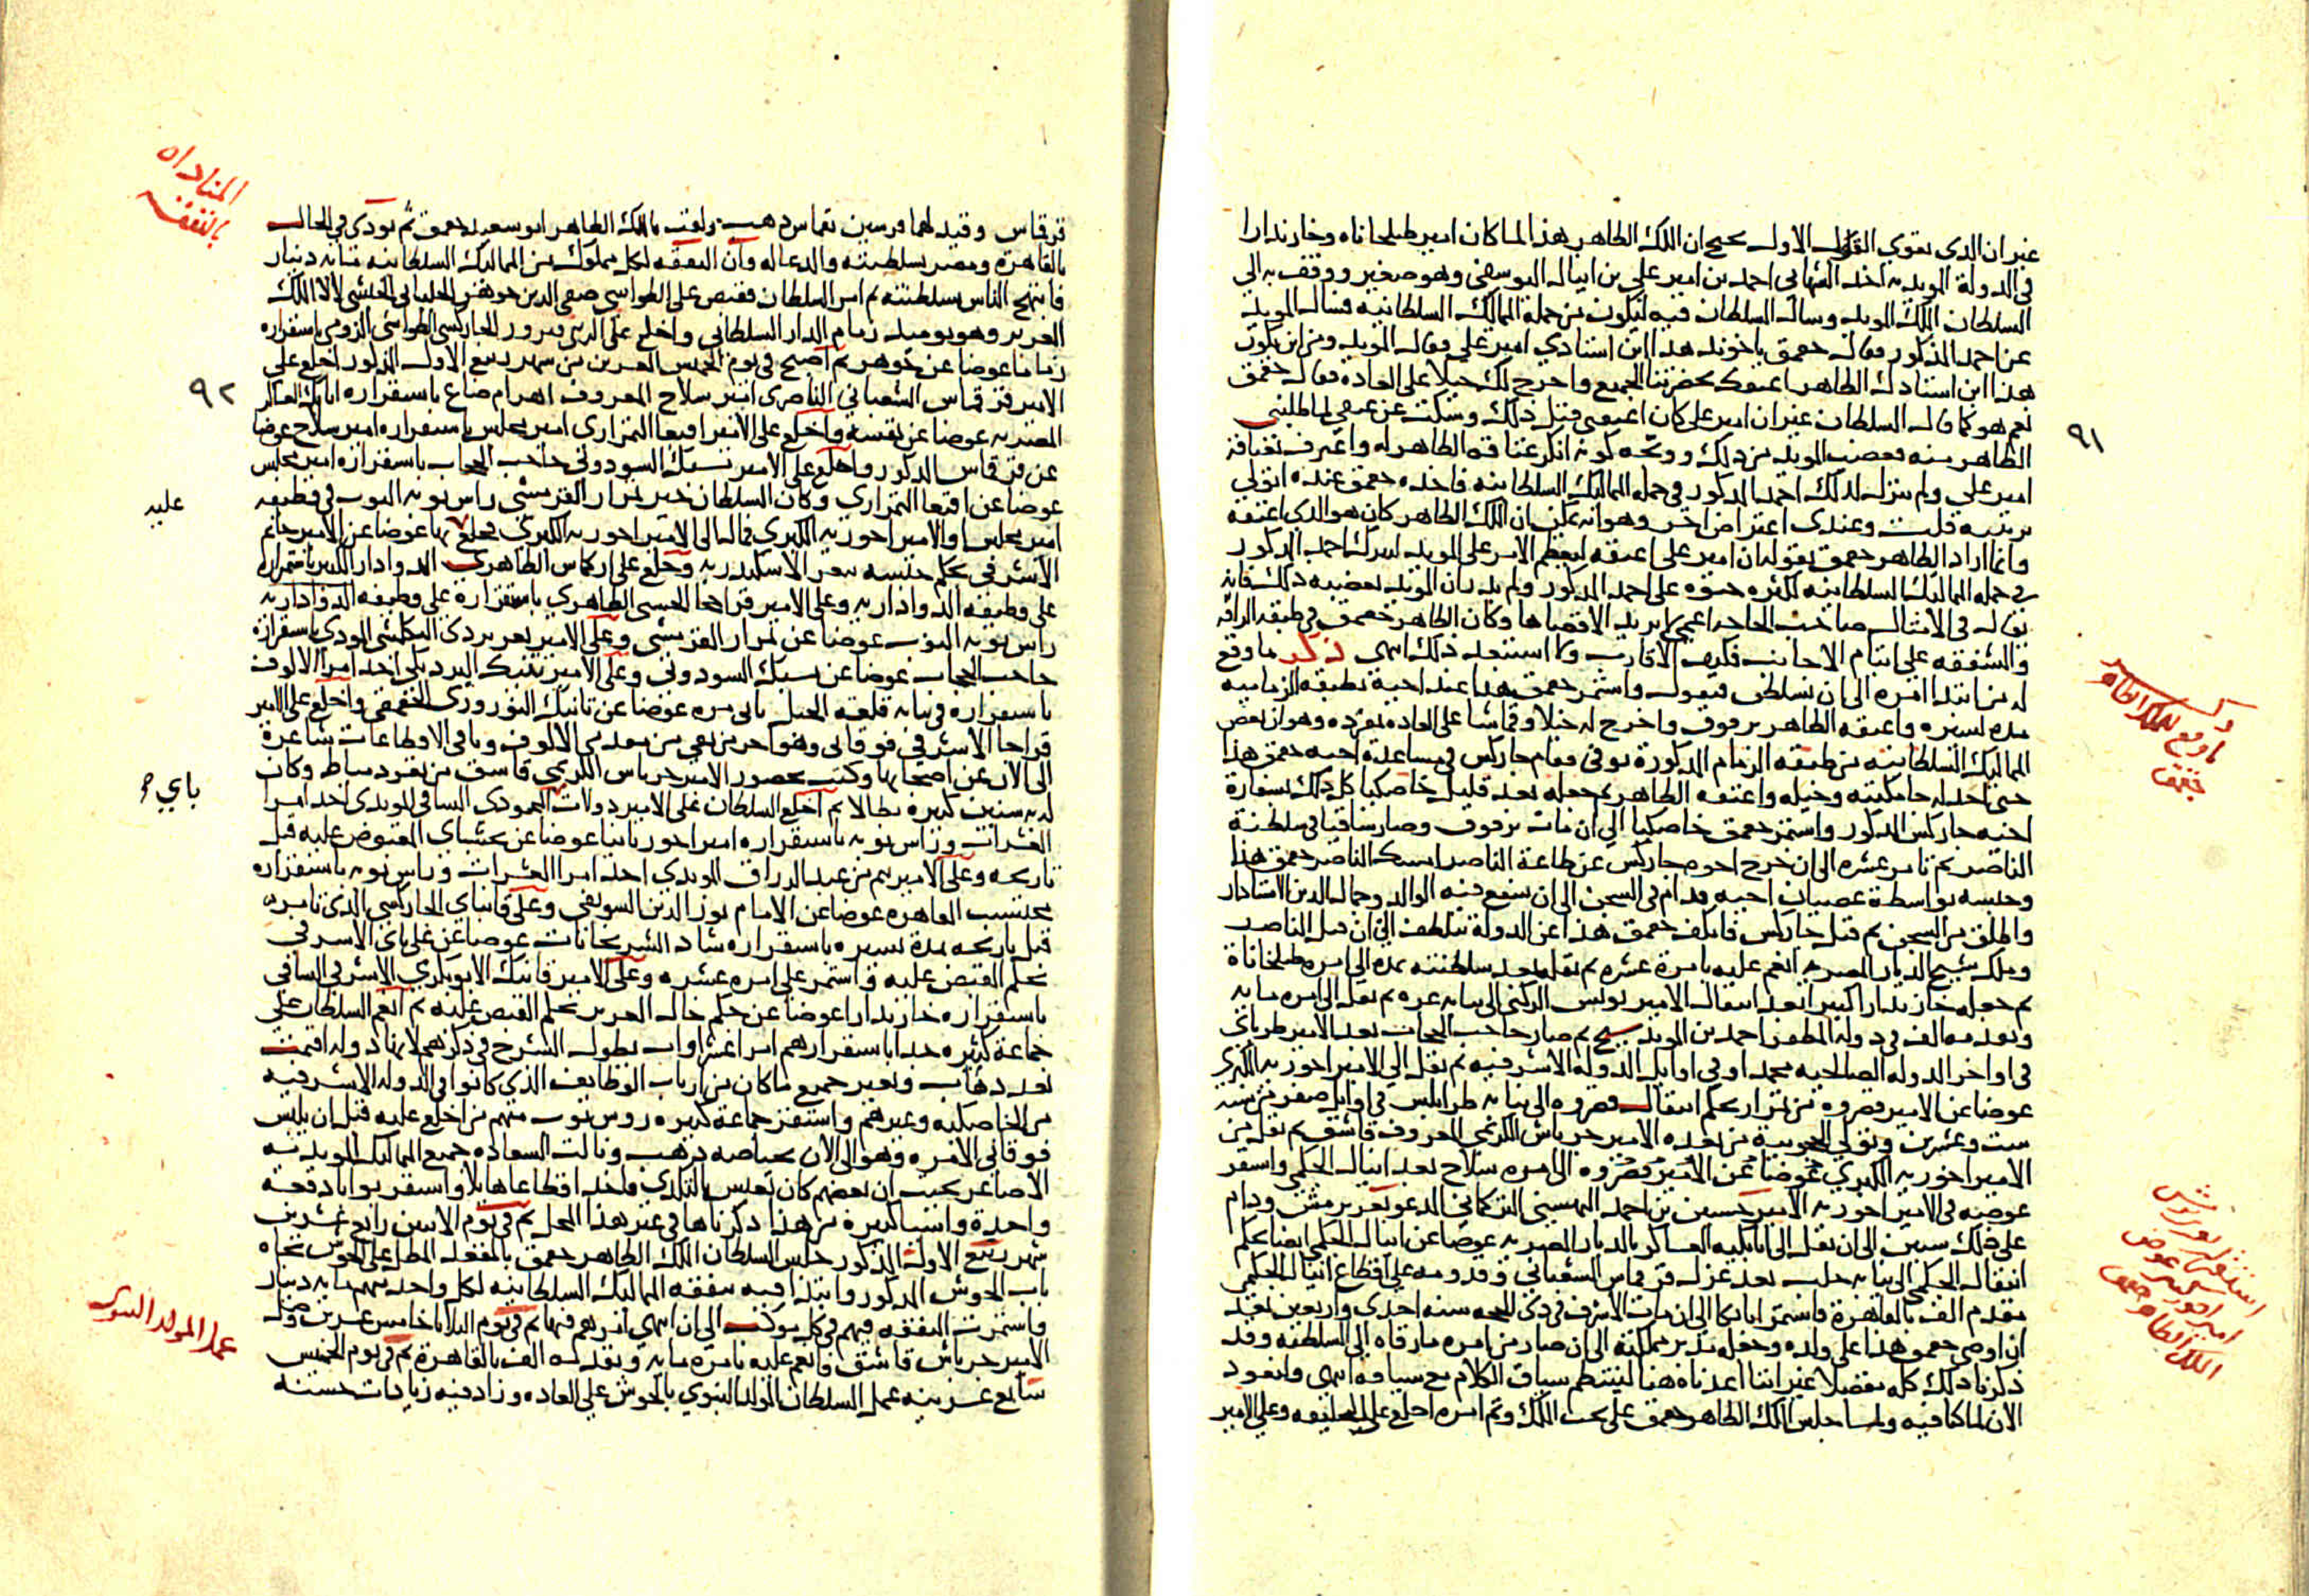 غير ان الذى يقوي القول الاول يحيى ان الملك الظاهر هذا لما كان امير طبلخاناه وخازندارا
فى الدولة المويديه اخذ الشهابي احمد بن امير علي بن اينال اليوسفي وهو صغير ووقف به الي
السلطان الملك المويد وسال السلطان فيه ليكون من جملة المماليك السلطانية فسال المويد
عن احمد المذكور فقال جقمق ياخوند هذا ابن استادي امير علي فقال المويد ومن اين يكون
هذا ابن استادك الظاهر اعتقك بحضرتنا الجميع واخرج لك خيلا على العاده فقال جقمق
نعم هو كما قال السلطان غير ان امير على كان اعتقنى قبل ذلك وسكت عن عتقى لما طلبنى
الظاهر منه فغضب المويد من ذلك ووبخه كونه انكر عتاقه الظاهر له واعترف بعتاقة
امير علي ولم ينزل لذلك احمد المذكور فى جملة المماليك السلطانيه فاخذه جقمق عنده اتولي
تربيته قلت وعندى اعتراض اخر وهو انه يمكن ان الملك الظاهر كان هو الذى اعتقه
وانما اراد الظاهر جقمق بقوله ان امير على اعتقه ليعظم الامر على المويد لينزل احمد المذكور
فى جملة المماليك السلطانيه لكثرة حنوه على احمد المذكور ولم يدر ان المويد يغضبه ذلك فانه
يقال فى الامثال صاحب الحاجه اعمى لا يريد الا قضاها وكان الظاهر جقمق فى طبعه الرافه
والشفقه علي ايتام الاجانب فكيف الاقارب ولا استبعد ذلك انتهى ذكر ما وقع
له من ابتدا امره الى ان تسلطن فيقول واستمر جقمق هذا عند اخيه بطبقة الزماميه
مده يسيره واعتقه الظاهر برقوق واخرج له خيلا وقماشا على العاده بمفرده وهو ان بعض
المماليك السلطانيه من طبقه الزمام المذكورة توفى فقام جاركس فى مساعدة اخيه جقمق هذا
حتى اخذ له جامكيته وخيله واعتقه الظاهر ثم جعله بعد قليل خاصكيا كل ذلك بسفارة
اخيه جاركس المذكور واستمر جقمق خاصكيا الي ان مات برقوق وصار ساقيا فى سلطنة
الناصر ثم تامر عشره الى ان خرج اخوه جاركس عن طاعة الناصر امسك الناصر جقمق هذا
وحبسه بواسطة عصيان اخيه فدام فى السجن الى ان شفع فيه الوالد وجمال الدين الاستادار
واطلق من السجن ثم قتل جاركس فانكف جقمق هذا عن الدولة بتلطف الي ان قتل الناصر
وملك شيخ الديار المصريه انعم عليه بامرة عشره ثم نقله بعد سلطنته بمده الى امره طبلخاناة
ثم جعله خازندارا كبيرا بعد انتقال الامير يونس الركنى الى نيابه غزه ثم نقل الى امره مايه
وتقدمه الف فى دولة المظفر احمد بن المويد شيخ ثم صار حاجب الحجاب بعد الامير طرباي
فى اواخر الدوله الصالحيه محمد او فى اوايل الدولة الاشرفيه ثم نقل الي الامير اخوريه الكبرى
عوضا عن الامير قصروه من تمراز بحكم انتقال قصروه الى نيابه طرابلس فى اوايل صفر من سنه
ست وعشرين وتولي الحجوبية من بعده الامير جرباش الكريمي المعروف قاشق ثم نقل من
الامير اخوريه الكبرى عوضا عن الامير قصروه الى امره سلاح بعد اينال الجكمى واستقر
عوضه فى الامير اخوريه الامير حسين بن احمد البهسنى التركمانى المدعو تغرى برمش ودام
علي ذلك سنين الى ان نقل الى اتابكيه العساكر بالديار المصريه عوضا عن اينال الجكمى ايضا بحكم
انتقال الجكمى الى نيابه حلب بعد عزل قرقماس الشعباني وقدومه علي اقطاع اينال الجكمى
مقدم الف بالقاهرة فاستمر اتابكا الى ان مات الاشرف فى ذى الحجه سنه احدى واربعين بعد
ان اوصى جقمق هذا على ولده وجعله مدبر مملكته الى ان صار من امره ما رقاه الى السلطنه وقد
ذكرنا ذلك كله مفصلا غير اننا اعدناه هنا لينتظم سياق الكلام مع سياقه انتهى ولنعود
الان لما كنا فيه ولما جلس الملك الظاهر جقمق على تخت الملك وتم امره اخلع على الخليفه وعلي الامير
٩١
ذكر
ما وقع للملك الظاهر
جقمق
استقرار تغرى برمش
امير اخور كبير عوض
الملك الظاهر جقمق
قرقماس وقيد لهما فرسين بقماس ذهب ولقب بالملك الظاهر ابو سعيد جقمق ثم نودى فى الحال
بالقاهرة ومصر بسلطنته والدعا له وان النفقه لكل مملوك من المماليك السلطانيه مايه دينار
فابتهج الناس بسلطنته ثم امر السلطان فقبض على الطواشي صفى الدين جوهر الجلبانى الحبشى لالا الملك
العزيز وهو يوميذ زمام الدار السلطاني واخلع على الزينى فيروز الجاركسى الطواشى الرومى باستقراره
زماما عوضا عن جوهر ثم اصبح فى يوم الخميس العشرين من شهر ربيع الاول المذكور اخلع على
الامير قرقماس الشعباني الناصرى امير سلاح المعروف اهرام ضاغ باستقراره اتابك العساكر
المصريه عوضا عن نفسه واخلع على الامير اقبغا التمرازى امير مجلس باستقراره امير سلاح عوضا
عن قرقماس المذكور واخلع على الامير يشبك السودونى حاجب الحجاب باستقراره امير مجلس
عوضا عن اقبغا التمرازي وكان السلطان خير تمراز القرمشى راس نوبه النوب فى وظيفه
امير مجلس او الامير اخوريه الكبرى فمال الى الامير اخوريه الكبرى فخلع بها عوضا عن الامير جانم
الاشرفى بحكم حبسه بثغر الاسكندريه وخلع على اركماس الظاهرى الدوادار الكبير باستمراره
على وظيفه الدواداريه وعلى الامير قراخجا الحسنى الظاهري باستقراره على وظيفه
راس نوبه النوب عوضا عن تمراز القرمشى وعلى الامير تغرى بردى البكلمشى الموذى باستقراره
حاجب الحجاب عوضا عن يشبك السودونى وعلى الامير تنبك البردبكى احد امرا الالوف
باستقراره فى نيابه قلعه الجبل ثانى مره عوضا عن تانبك النوروزى الجقمقى واخلع على الامير
قراجا الاشرفى فوقانى وهو اخر من بقى من مقدمى الالوف وباقى الاقطاعات شاغرة
الى الان عن اصحابها وكتب بحضور الامير جرباش الكريمي قاشق من ثغر دمياط وكان
له به سنين كثيره بطالا ثم اخلع السلطان على الامير دولات المحمودى الساقى المويدى احد امرا
العشرات وراس نوبه باستقراره امير اخور ثانيا عوضا عن يخشباى المقبوض عليه قبل
تاريخه وعلى الامير تنم من عبد الرزاق المويدى احد امرا العشرات وراس نوبه باستقراره
محتسب القاهره عوضا عن الامام نور الدين السويفى وعلى قانباي الجاركسي الذى تامر
قبل تاريخه بمدة يسيره باستقراره شاد الشربخانات عوضا عن على باى الاشرفى
بحكم القبض عليه واستمر على امره عشره وعلى الامير قانبك الابوبكرى الاشرفى الساقى
باستقراره خازندارا عوضا عن جكم خال العزيز بحكم القبض عليه ثم انعم السلطان على
جماعة كثيره جدا باستقرارهم امرا عشراوات يطول الشرح فى ذكرهم لانها دوله اقيمت
بعد ذهاب وتغير جميع ما كان من ارباب الوظايف الذي كانوا فى الدوله الاشرفيه
من الخاصكيه وغيرهم واستقر جماعة كثيره روس نوب منهم من اخلع عليه قبل ان يلبس
فوقانى الامره وهو الى الان بحياصه ذهب ونالت السعاده جميع المماليك المويديه
الاصاغر بحيث ان بعضهم كان يعيش بالتكدى فاخذ اقطاعا هايلا واستقر بوابا دفعة
واحدة واشيا كثيرة من هذا ذكرناها فى غير هذا المحل ثم فى يوم الاثنين رابع عشرين
شهر ربيع الاول المذكور جلس السلطان الملك الظاهر جقمق بالمقعد المطل على الحوش تجاه
باب الحوش المذكور وابتدا فيه بنفقه المماليك السلطانيه لكل واحد منهم مايه دينار
واستمرت النفقه فيهم فى كل موكب الي ان انتهى امرهم فيها ثم فى يوم الثلاثا خامس عشرين وصل
الامير جرباش قاشق فانعم عليه بامره مايه وتقدمه الف بالقاهرة ثم فى يوم الخميس
سابع عشرينه عمل السلطان المولد النبوي بالحوش علي العاده وزاد فيه زيادات حسنه
المناداه
بالنفقه
٩٢
عليه
باي
عمل المولد النبوى